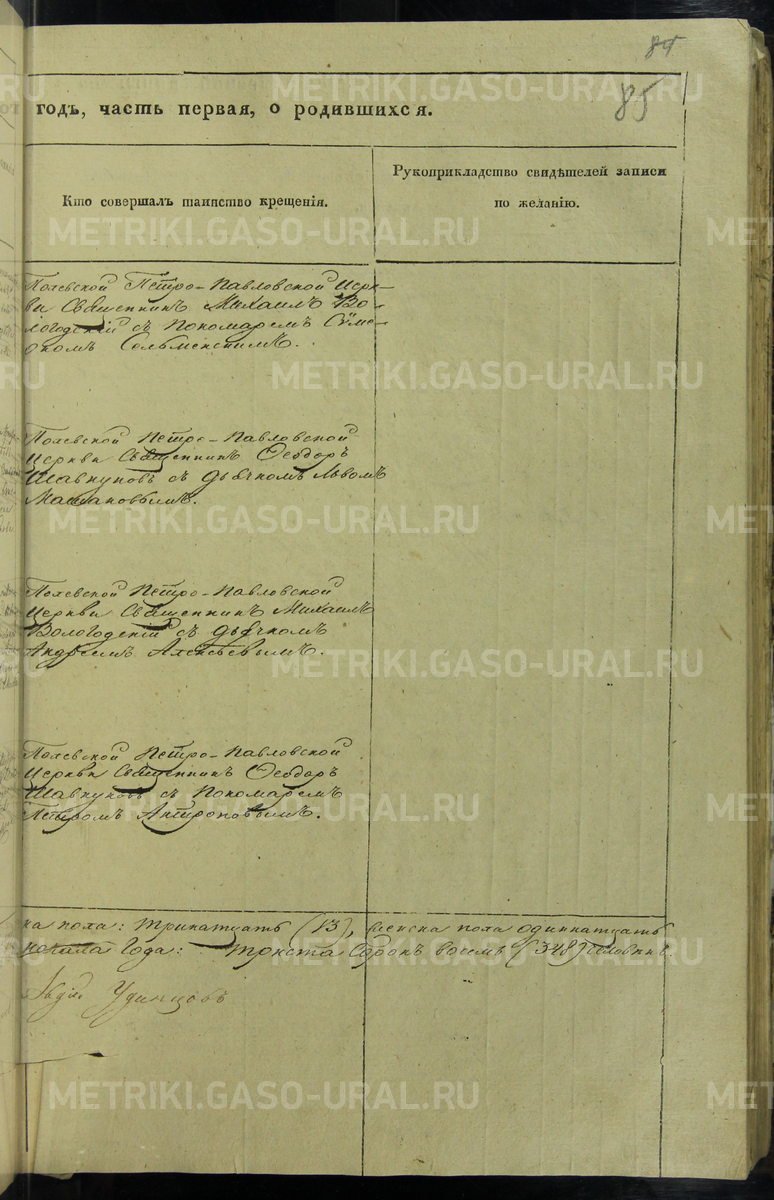 84
85
годъ, часть первая, о родившихся.
Кто совершалъ таинство крещенія.
Рукоприкладство свидѣтелей записи
по желанію.
Полевской Петро-Павловской Церк-
ви Священникъ Михаилъ Во-
логодскій съ Пономаремъ Сѵме-
ономъ
Полевской Петро-Павловской
Церкви Священникъ Ѳеодоръ
Шавкуновъ съ дьячкомъ Львомъ
Полевской Петро-Павловской
Церкви Священникъ Михаилъ
Вологодскій съ дьячкомъ
Андреемъ Алексѣевымъ.
Полевской Петро-Павловской
Церкви Священникъ Ѳеодоръ
Шавкуновъ съ Пономаремъ
Петромъ Антроповымъ.
ка пола: тринатцать (13), женска пола одиннатцать
начала года: триста сорокъ восемь (348) человѣкъ.
Удинцовъ
METRIKI.GASO-URAL.RU